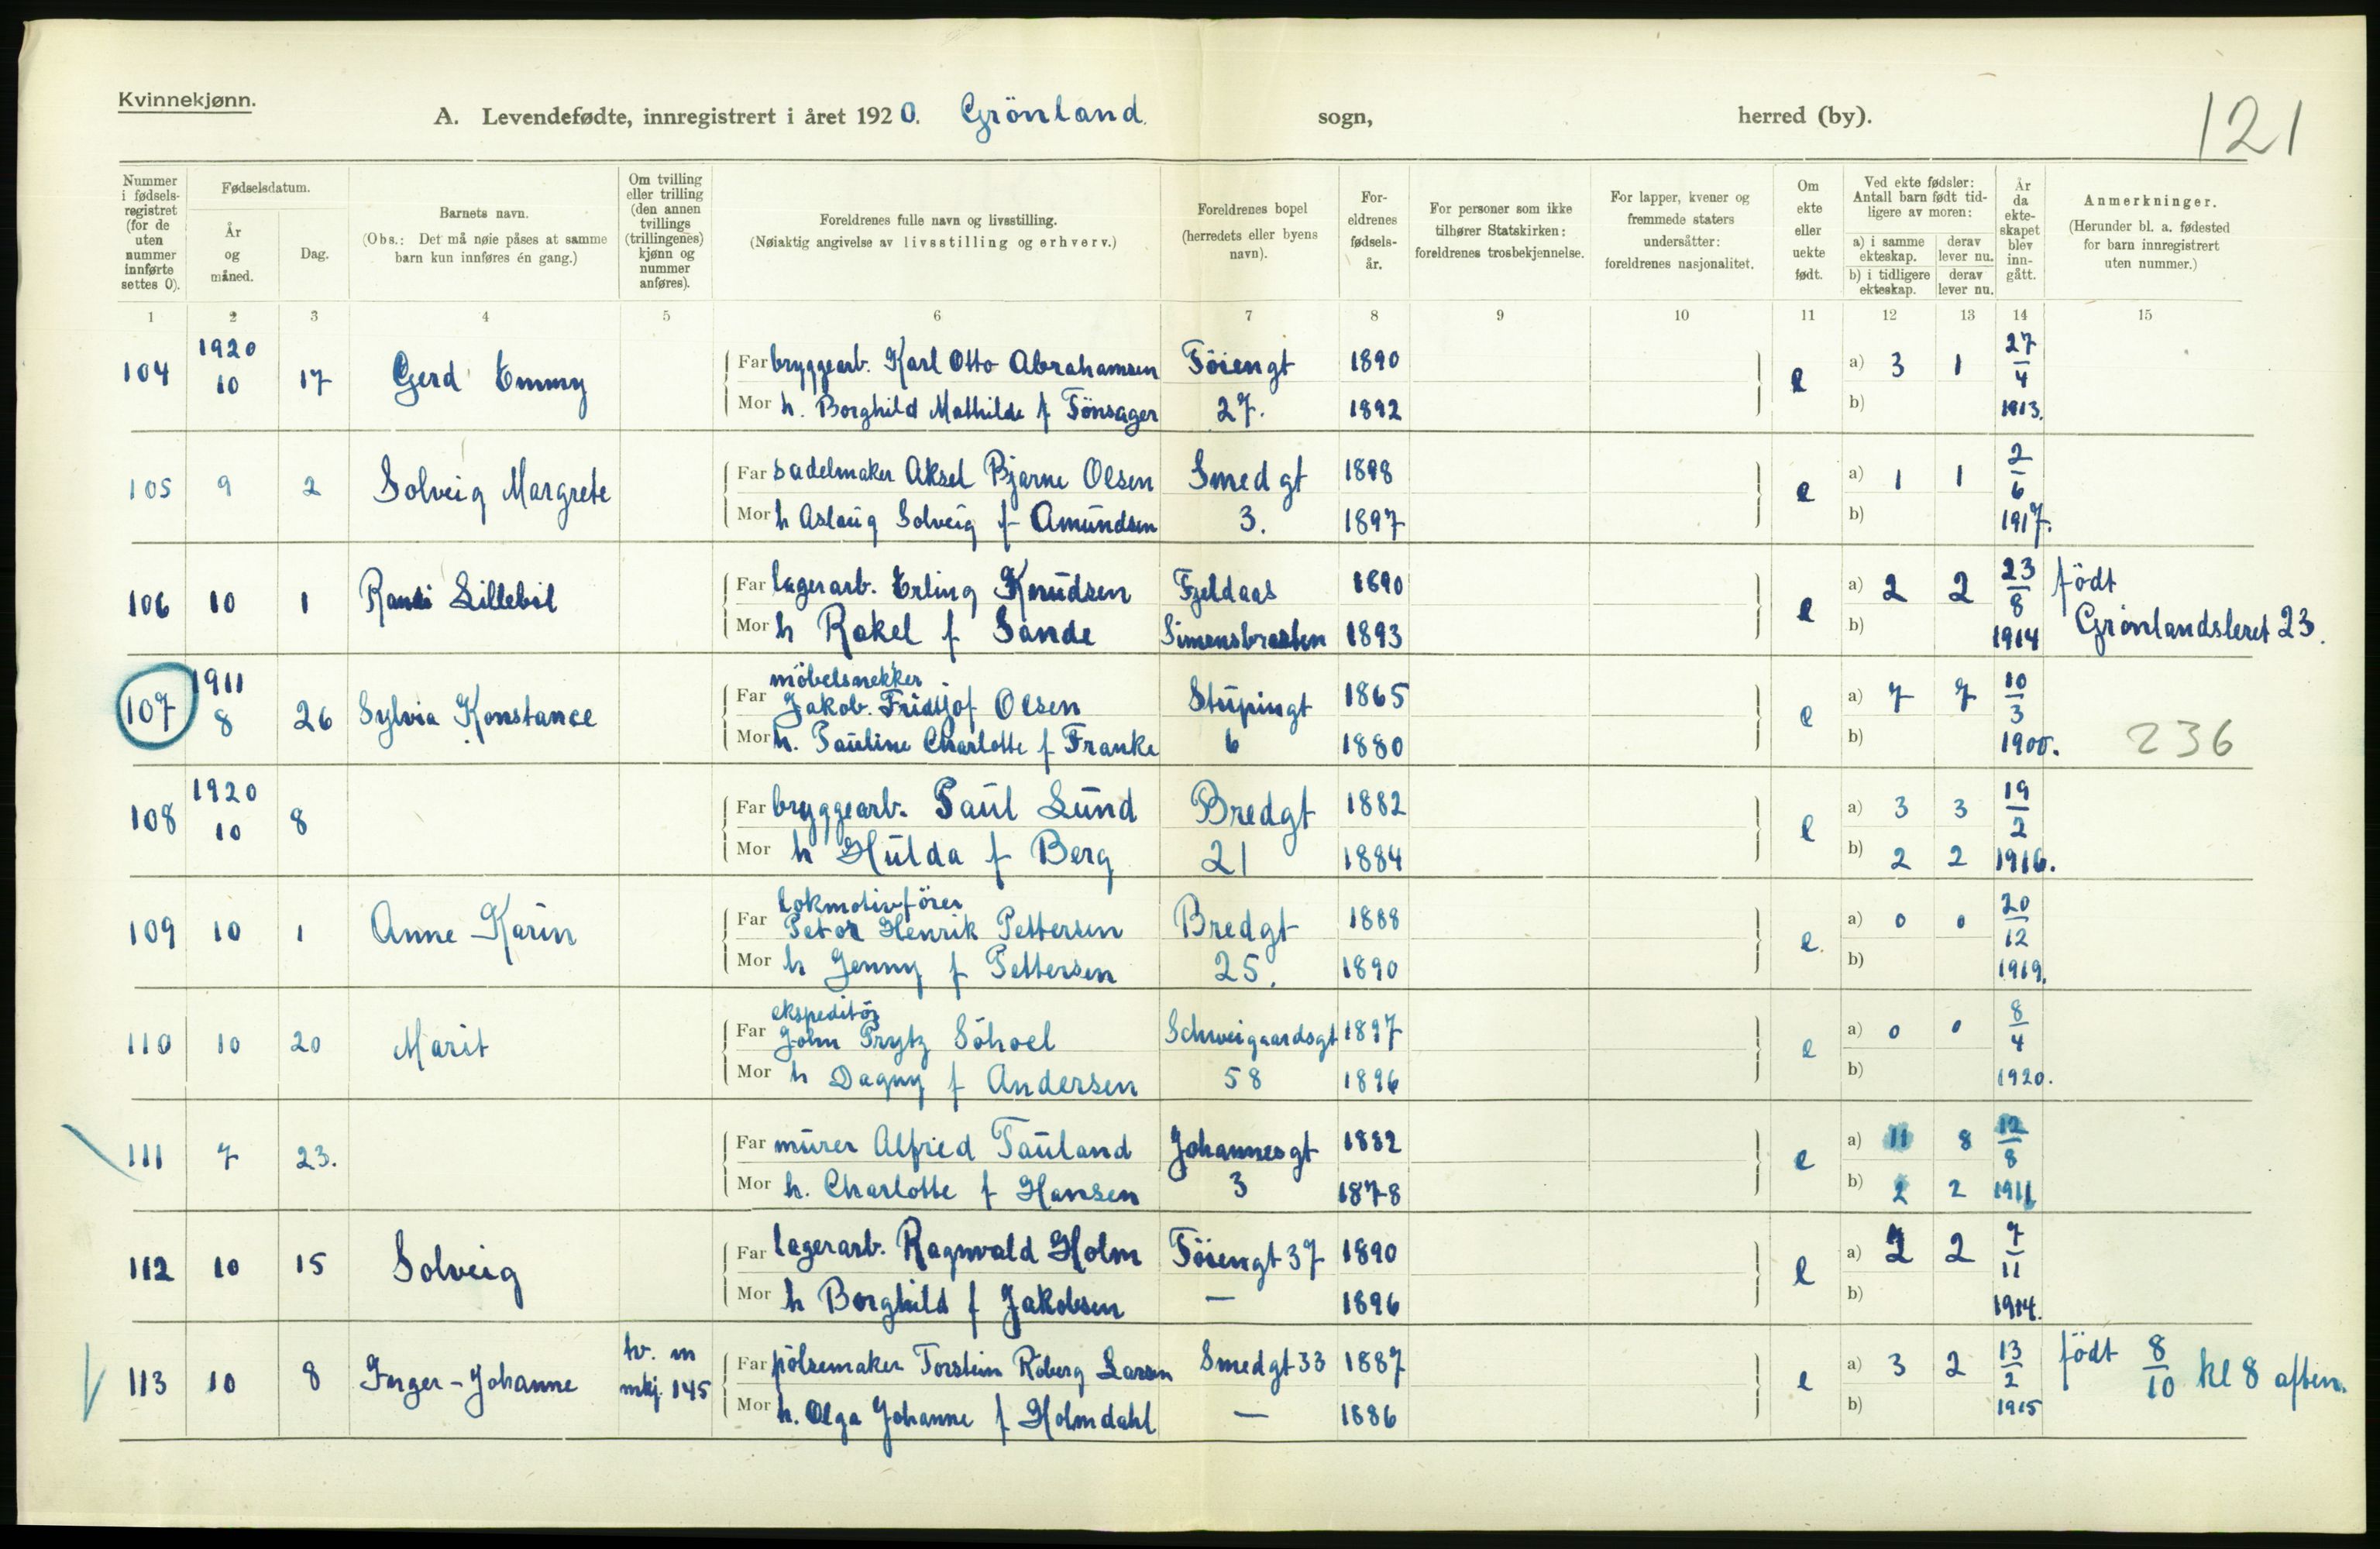 Kvinnekjønn.
A. Levendefødte, innregistrert i året 1920. Grönland sogn, herred (by).
121
Nummer i fødsels-registret (for de uten nummer innførte settes 0).
Fødselsdatum.
År og måned.
Dag.
Barnets navn.
(Obs.: Det må nøie påses at samme barn kun innføres én gang.)
Om tvilling eller trilling (den annen tvillings (trillingenes) kjønn og nummer anføres).
Foreldrenes fulle navn og livsstilling.
(Nøiaktig angivelse av livsstilling og erhverv.)
Foreldrenes bopel (herredets eller byens navn).
For-eldrenes fødsels-år.
For personer som ikke tilhører Statskirken: foreldrenes trosbekjennelse.
For lapper, kvener og fremmede staters undersåtter: foreldrenes nasjonalitet.
Om ekte eller uekte født.
Ved ekte fødsler: Antall barn født tid-ligere av moren:
a) i samme ekteskap. derav lever nu.
b) i tidligere ekteskap. derav lever nu.
År da ekte-skapet blev inn-gått.
Anmerkninger.
(Herunder bl. a. fødested for barn innregistrert uten nummer.)
1 2 3 4 5 6 7 8 9 10 11 12 13 14 15
104 1920 10 17 Gerd Emmy Far bryggearb. Karl Otto Abrahamsen Töiengt 1890 e a) 3 1 27/4
Mor h. Borghild Mathilde f Tönsager 27. 1892 b) 1913.
105 9 2 Solveig Margrete Far sadelmaker Aksel Bjarne Olsen Smedgt 1898 e a) 1 1 2/6
Mor h Aslaug Solveig f Amundsen 3. 1897 b) 1917.
106 10 1 Randi Lillebil Far lagerarb. Erling Knudsen Fjeldaas 1890 e a) 2 2 23/8 födt
Mor h Rakel f Sande Simensbraaten 1893 b) 1914 Grönlandsleret 23.
107 1911 8 26 Sylvia Konstance Far möbelsnekker Jakob. Fridtjof Olsen Stupingt 1865 e a) 7 7 10/3
Mor h. Pauline Charlotte f Franke 6 1880 b) 1900. 236
108 1920 10 8 Far bryggearb. Paul Lund Bredgt 1882 e a) 3 3 19/2
Mor h Hulda f Berg 21 1884 b) 2 2 1916.
109 10 1 Anne Karin Far lokmotivförer Petor Henrik Pettersen Bredgt 1888 e. a) 0 0 20/12
Mor h Jenny f Pettersen 25. 1890 b) 1919.
110 10 20 Marit Far ekspeditör John Prytz Söhoel Schweigaardsgt 1897 e a) 0 0 8/4
Mor h Dagny f Andersen 58 1896 b) 1920.
111 7 23. Far murer Alfred Tauland Johannesgt 1882 e a) 11 8 12/8
Mor h. Charlotte f Hansen 3 1878 b) 2 2 1911
112 10 15 Solveig Far lagerarb. Ragnvald Holm Töiengt 37 1890 e a) 2 2 7/11
Mor h Borghild f Jakobsen — 1896 b) 1914.
113 10 8 Inger-Johanne tv. m mkj. 145 Far pölsemaker Torstein Roberg Larsen Smedgt 33 1887 e a) 3 2 13/2 födt 8/10 kl 8 aften.
Mor h. Olga Johanne f Holmdahl — 1886 b) 1915